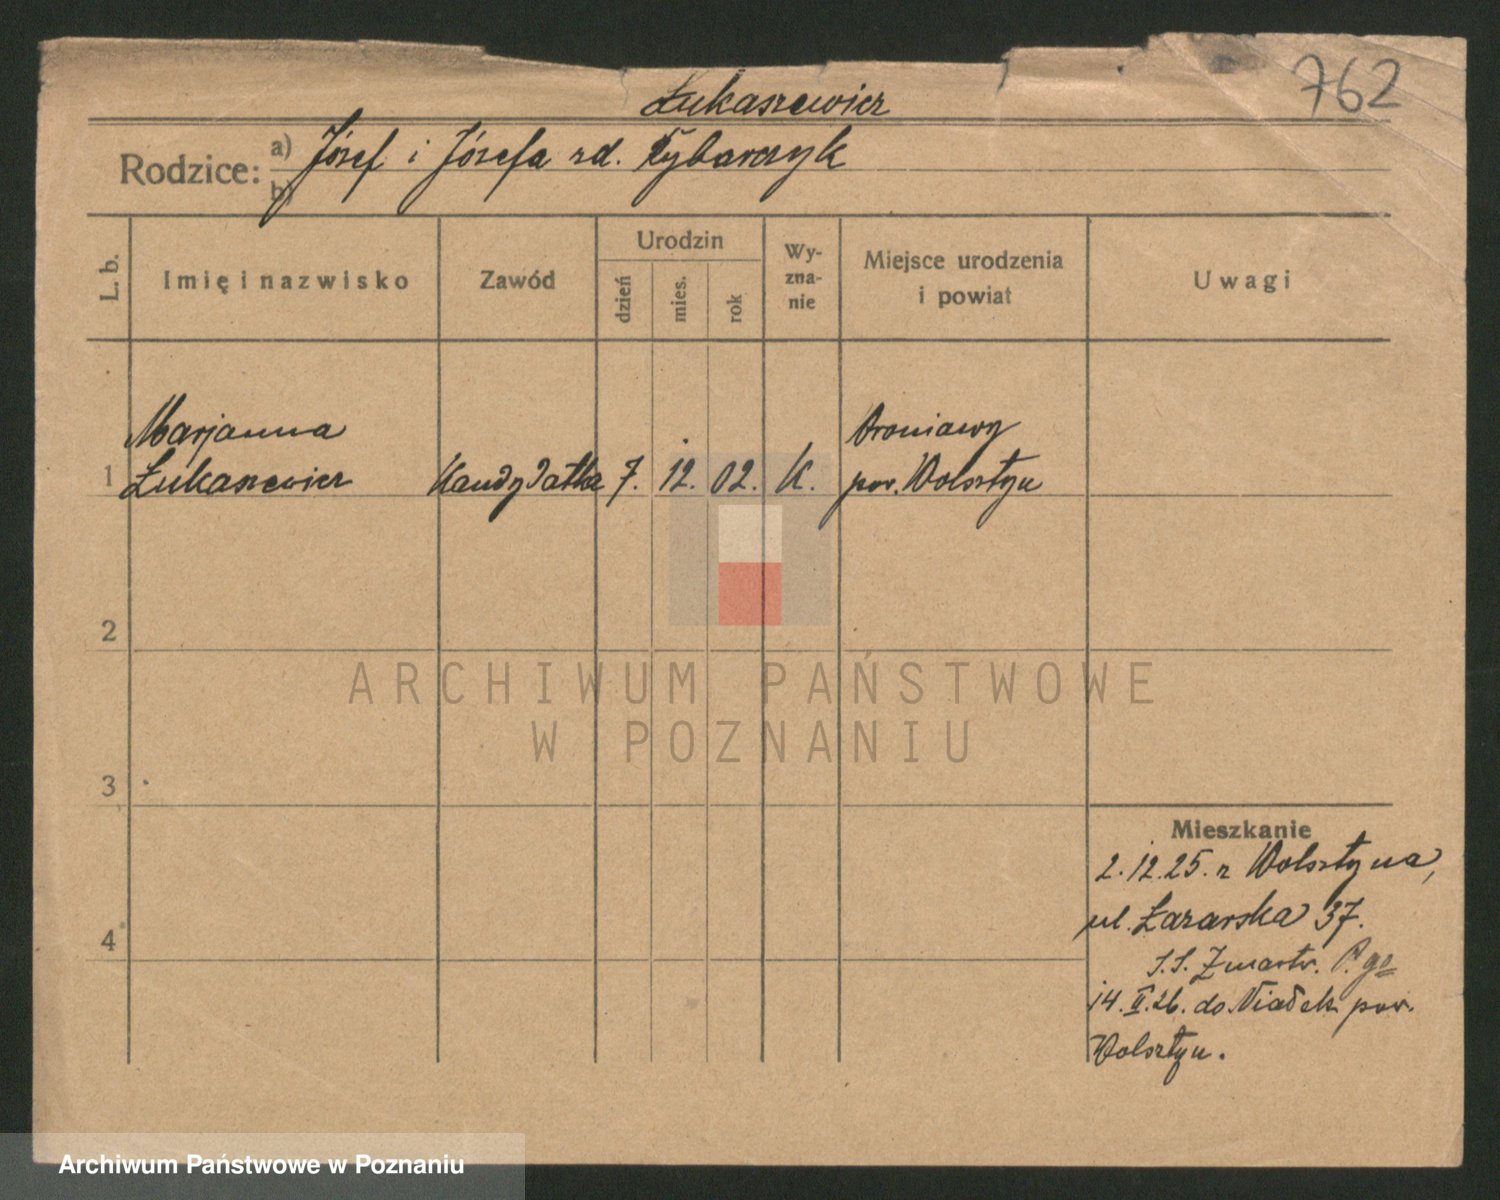 762
Łukaszewicz
Rodzice: a) Józef i Józefa zd. Rybarczyk
b)
L. b.
Imię i nazwisko
Zawód
Urodzin
dzień
mies.
rok
Wy-
zna-
nie
Miejsce urodzenia
i powiat
Uwagi
Marjanna
Łukaszewicz
1
Kandydatka
7.
12.
02.
K.
Broniawy
pow. Wolsztyn
2
3
4
ARCHIWUM PAŃSTWOWE
W POZNANIU
Mieszkanie
2.12.25. z Wolsztyna,
ul. Łazarska 37.
S.S. Zmartw.
14.II.26. do Wiałek pow.
Wolsztyn.
Archiwum Państwowe w Poznaniu